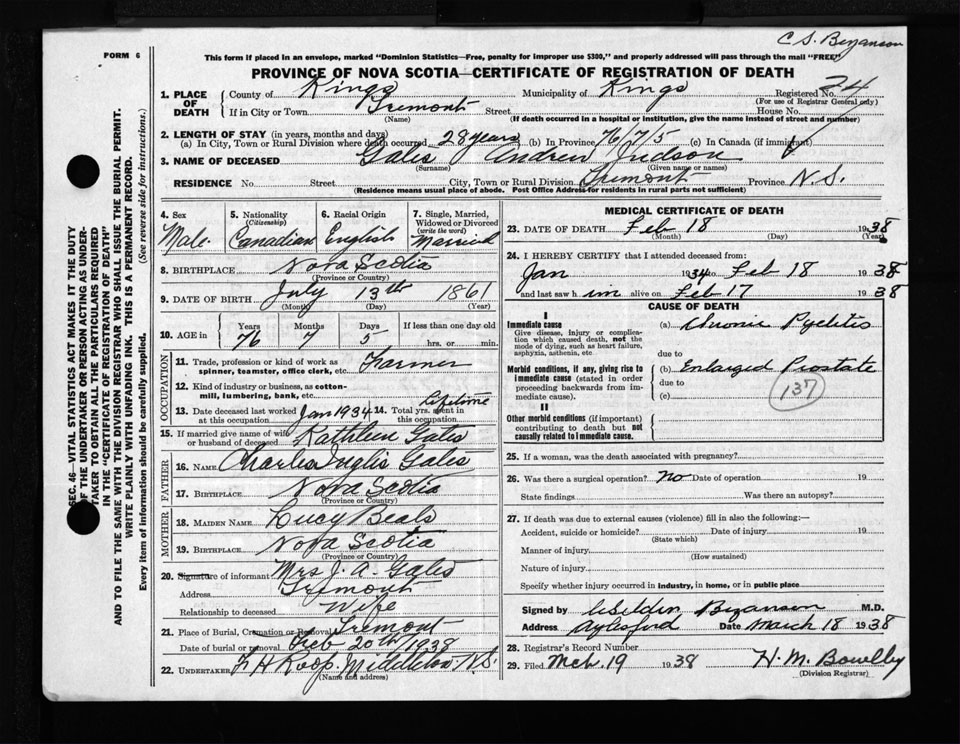 C S. Bezanson
FORM 6
This form if placed in an envelope, marked "Dominion Statistics—Free, penalty for improper use $300," and properly addressed will pass through the mail "FREE"
PROVINCE OF NOVA SCOTIA—CERTIFICATE OF REGISTRATION OF DEATH
1. PLACE OF DEATH County of Kings Municipality of Kings Registered No. 74
(For use of Registrar General only)
If in City or Town Tremont Street House No.
(Name) (If death occurred in a hospital or institution, give the name instead of street and number)
2. LENGTH OF STAY (in years, months and days)
(a) In City, Town or Rural Division where death occurred 28 years (b) In Province 76/7/5 (c) In Canada (if immigrant)
3. NAME OF DECEASED Gates Andrew Judson
(Surname) (Given name or names)
RESIDENCE No. Street City, Town or Rural Division Tremont Province N.S.
(Residence means usual place of abode. Post Office Address for residents in rural parts not sufficient)
SEC. 46—VITAL STATISTICS ACT MAKES IT THE DUTY
OF THE UNDERTAKER OR PERSON ACTING AS UNDER-
TAKER TO OBTAIN ALL THE PARTICULARS REQUIRED
IN THE "CERTIFICATE OF REGISTRATION OF DEATH"
AND TO FILE THE SAME WITH THE DIVISION REGISTRAR WHO SHALL ISSUE THE BURIAL PERMIT.
WRITE PLAINLY WITH UNFADING INK. THIS IS A PERMANENT RECORD.
Every item of information should be carefully supplied. (See reverse side for instructions.)
4. Sex
Male
5. Nationality
(Citizenship)
Canadian
6. Racial Origin
English
7. Single, Married,
Widowed or Divorced
(write the word)
Married
8. BIRTHPLACE Nova Scotia
(Province or Country)
9. DATE OF BIRTH July 13th 1861
(Month) (Day) (Year)
10. AGE in Years Months Days If less than one day old
76 7 5 hrs. or min.
OCCUPATION
11. Trade, profession or kind of work as
spinner, teamster, office clerk, etc. Farmer
12. Kind of industry or business, as cotton-
mill, lumbering, bank, etc.
13. Date deceased last worked
at this occupation Jan 1934
14. Total yrs. spent in
this occupation Lifetime
15. If married give name of wife
or husband of deceased Kathleen Gates
FATHER
16. NAME Charles Inglis Gates
17. BIRTHPLACE Nova Scotia
(Province or Country)
MOTHER
18. MAIDEN NAME Lucy Beals
19. BIRTHPLACE Nova Scotia
(Province or Country)
20. Signature of informant Mrs J. A. Gates
Address Tremont
Relationship to deceased Wife
21. Place of Burial, Cremation or Removal Tremont
Date of burial or removal Feb 20th 1938
22. UNDERTAKER H Roop. Middleton N.S.
(Name and address)
MEDICAL CERTIFICATE OF DEATH
23. DATE OF DEATH Feb 18 1938
(Month) (Day) (Year)
24. I HEREBY CERTIFY that I attended deceased from:
Jan 1934 to Feb 18 1938
and last saw him alive on Feb 17 1938
CAUSE OF DEATH
I
Immediate cause (a) Chronic Pyelitis
Give disease, injury or complica-
tion which caused death, not the
mode of dying, such as heart failure,
asphyxia, asthenia, etc due to
Morbid conditions, if any, giving rise to (b) Enlarged Prostate
immediate cause (stated in order due to
proceeding backwards from im- (c)
mediate cause). 137
II
Other morbid conditions (if important)
contributing to death but not
causally related to immediate cause.
25. If a woman, was the death associated with pregnancy?
26. Was there a surgical operation? no Date of operation 19
State findings Was there an autopsy?
27. If death was due to external causes (violence) fill in also the following:—
Accident, suicide or homicide? Date of injury 19
(State which)
Manner of injury
(How sustained)
Nature of injury
Specify whether injury occurred in industry, in home, or in public place
Signed by Bezanson M.D.
Address Aylesford Date March 18 1938
28. Registrar's Record Number
29. Filed Mch. 19 1938 H. M. Bowlby
(Division Registrar)